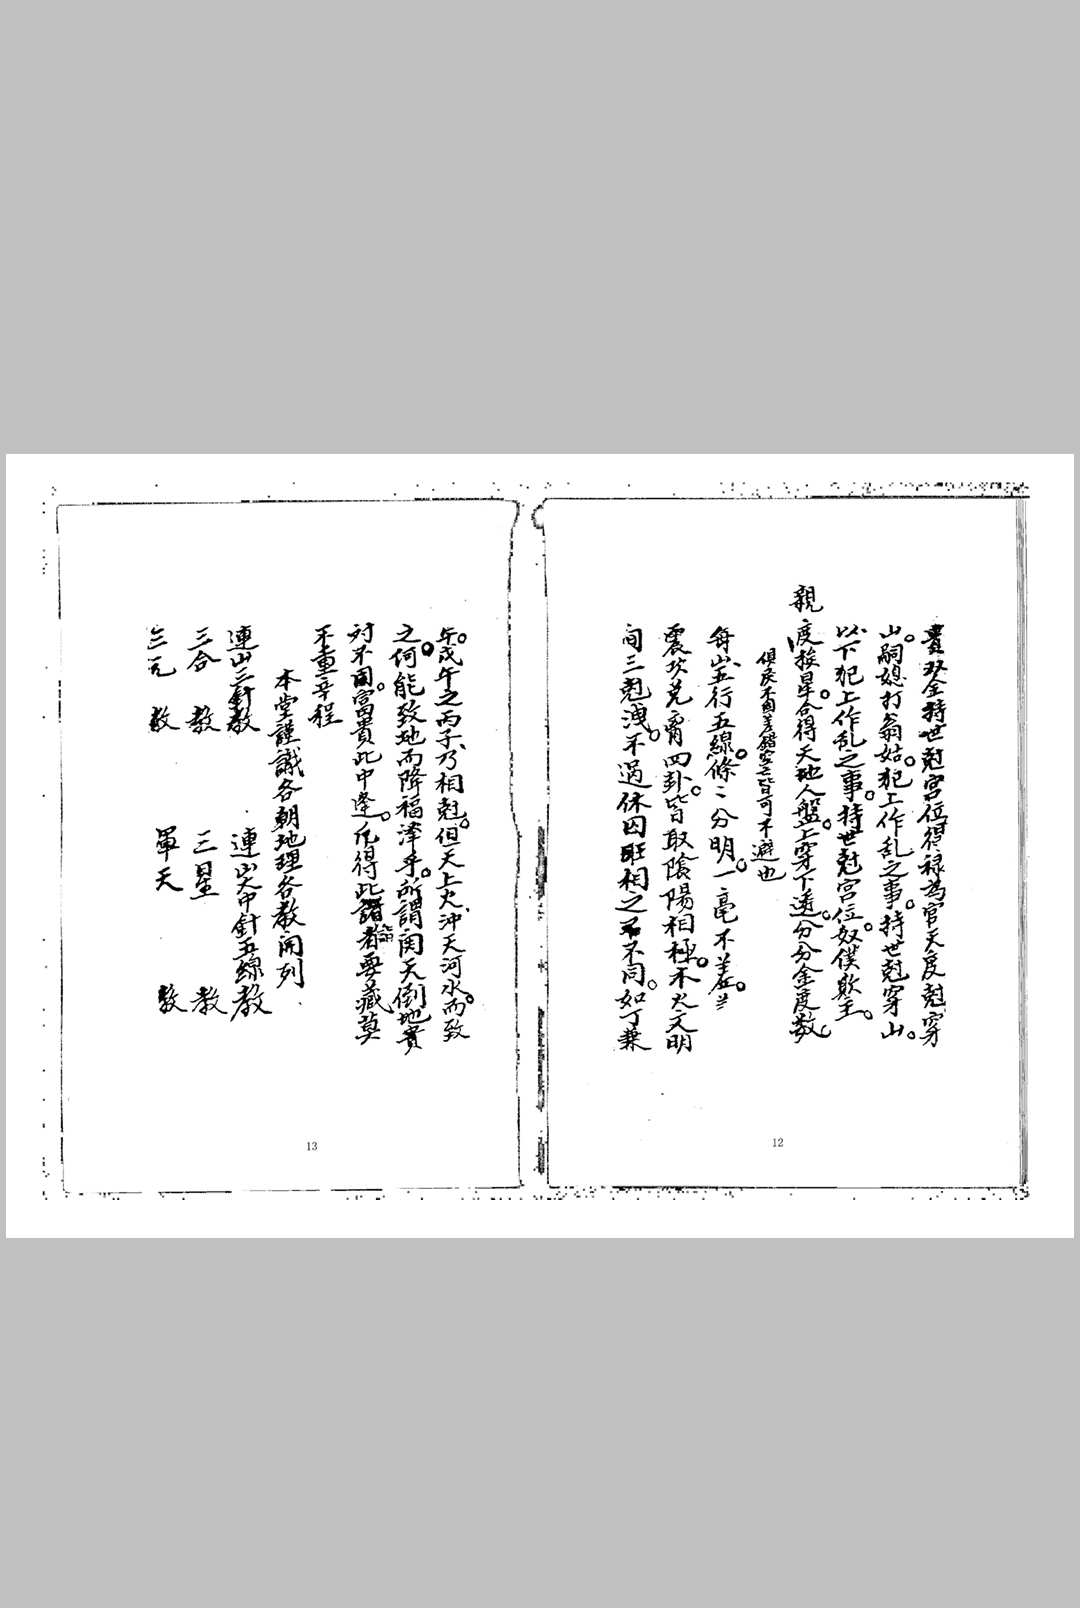 貴双金持世尅宮位得禄為官天度尅穿
山。嗣媳打翁姑。犯上作乱之事。持世尅穿山。
以下犯上作乱之事。持世尅宮位。奴僕欺主。
親
度挨星。合得天地人盤。上穿下透。分分金度数
不可差錯空亡皆可不避也
每山五行五線。條〻分明。一毫不差。
震坎兌离四卦。皆取陰陽相極。木火文明
間三尅洩。不過休囚旺相之不同。如丁兼
12
午。戊午之丙子。乃相尅。但天上火。沖天河水。而致
之。何能致地而降福澤乎。所謂関天倒地貴
对不同。富貴此中逢。凡得此諸者要藏莫
不重辛程
本堂謹識各朝地理各教開列
連山三針教 連山六甲針五線教
三合教 三星教
三元教 軍天教
13